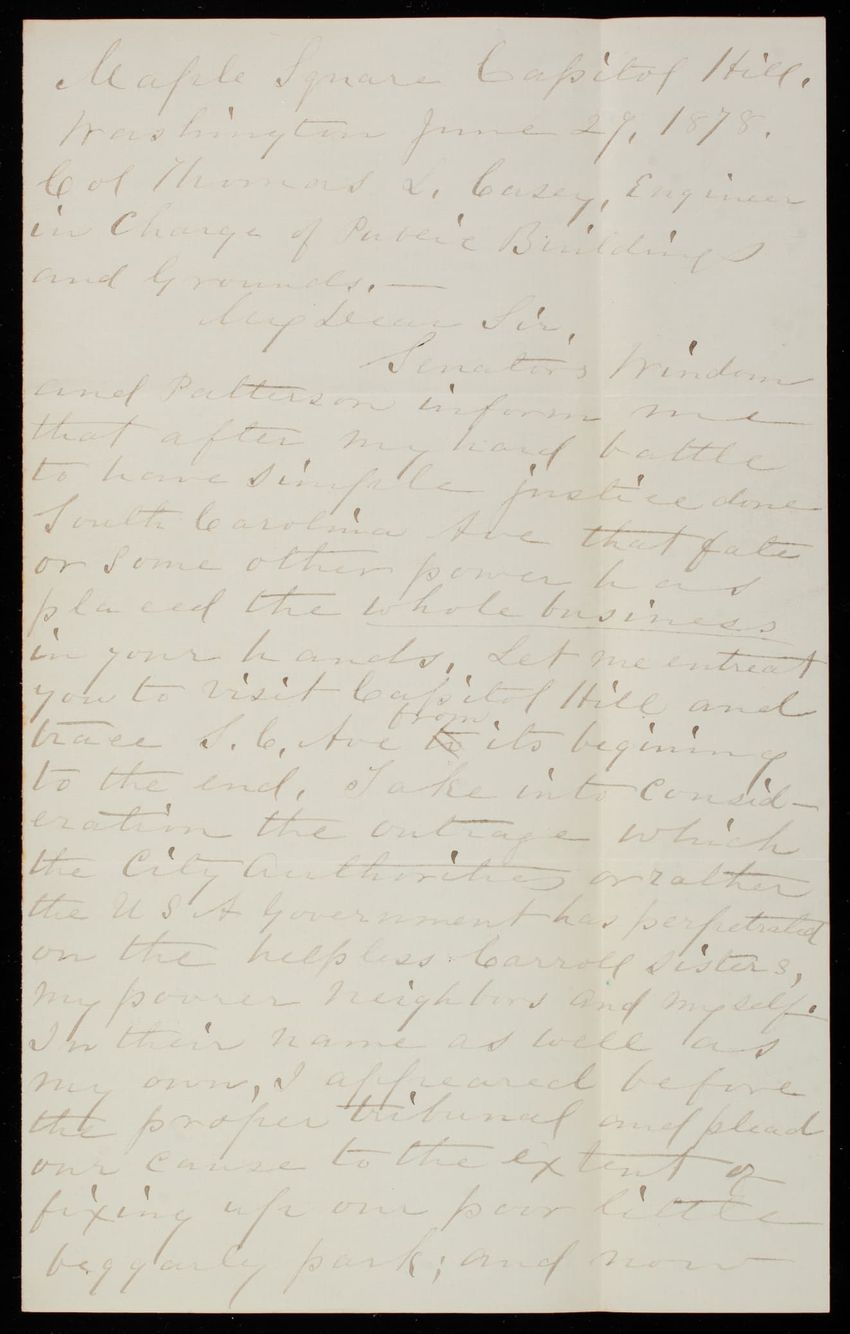 Maple Square Capitol Hill.
Washington June 29, 1878.
Col Thomas L. Casey, Engineer
in Charge of Public Buildings
and Grounds. —
My Dear Sir,
Senators Windom
and Patterson inform me
that after my hard battle
to have simple justice done
South Carolina Ave that fate
or some other power has
placed the whole business
in your hands. Let me entreat
you to visit Capitol Hill and
trace S. C. Ave from its begining
to the end. Take into consid-
eration the outrage which
the City Authorities or rather
the U S A Government has perpetrated
on the helpless Carroll sisters,
my poorer neighbors and myself.
In their name as well as
my own, I appeared before
the proper tribunal and plead
our cause to the extent of
fixing up our poor little
beggarly park; and now